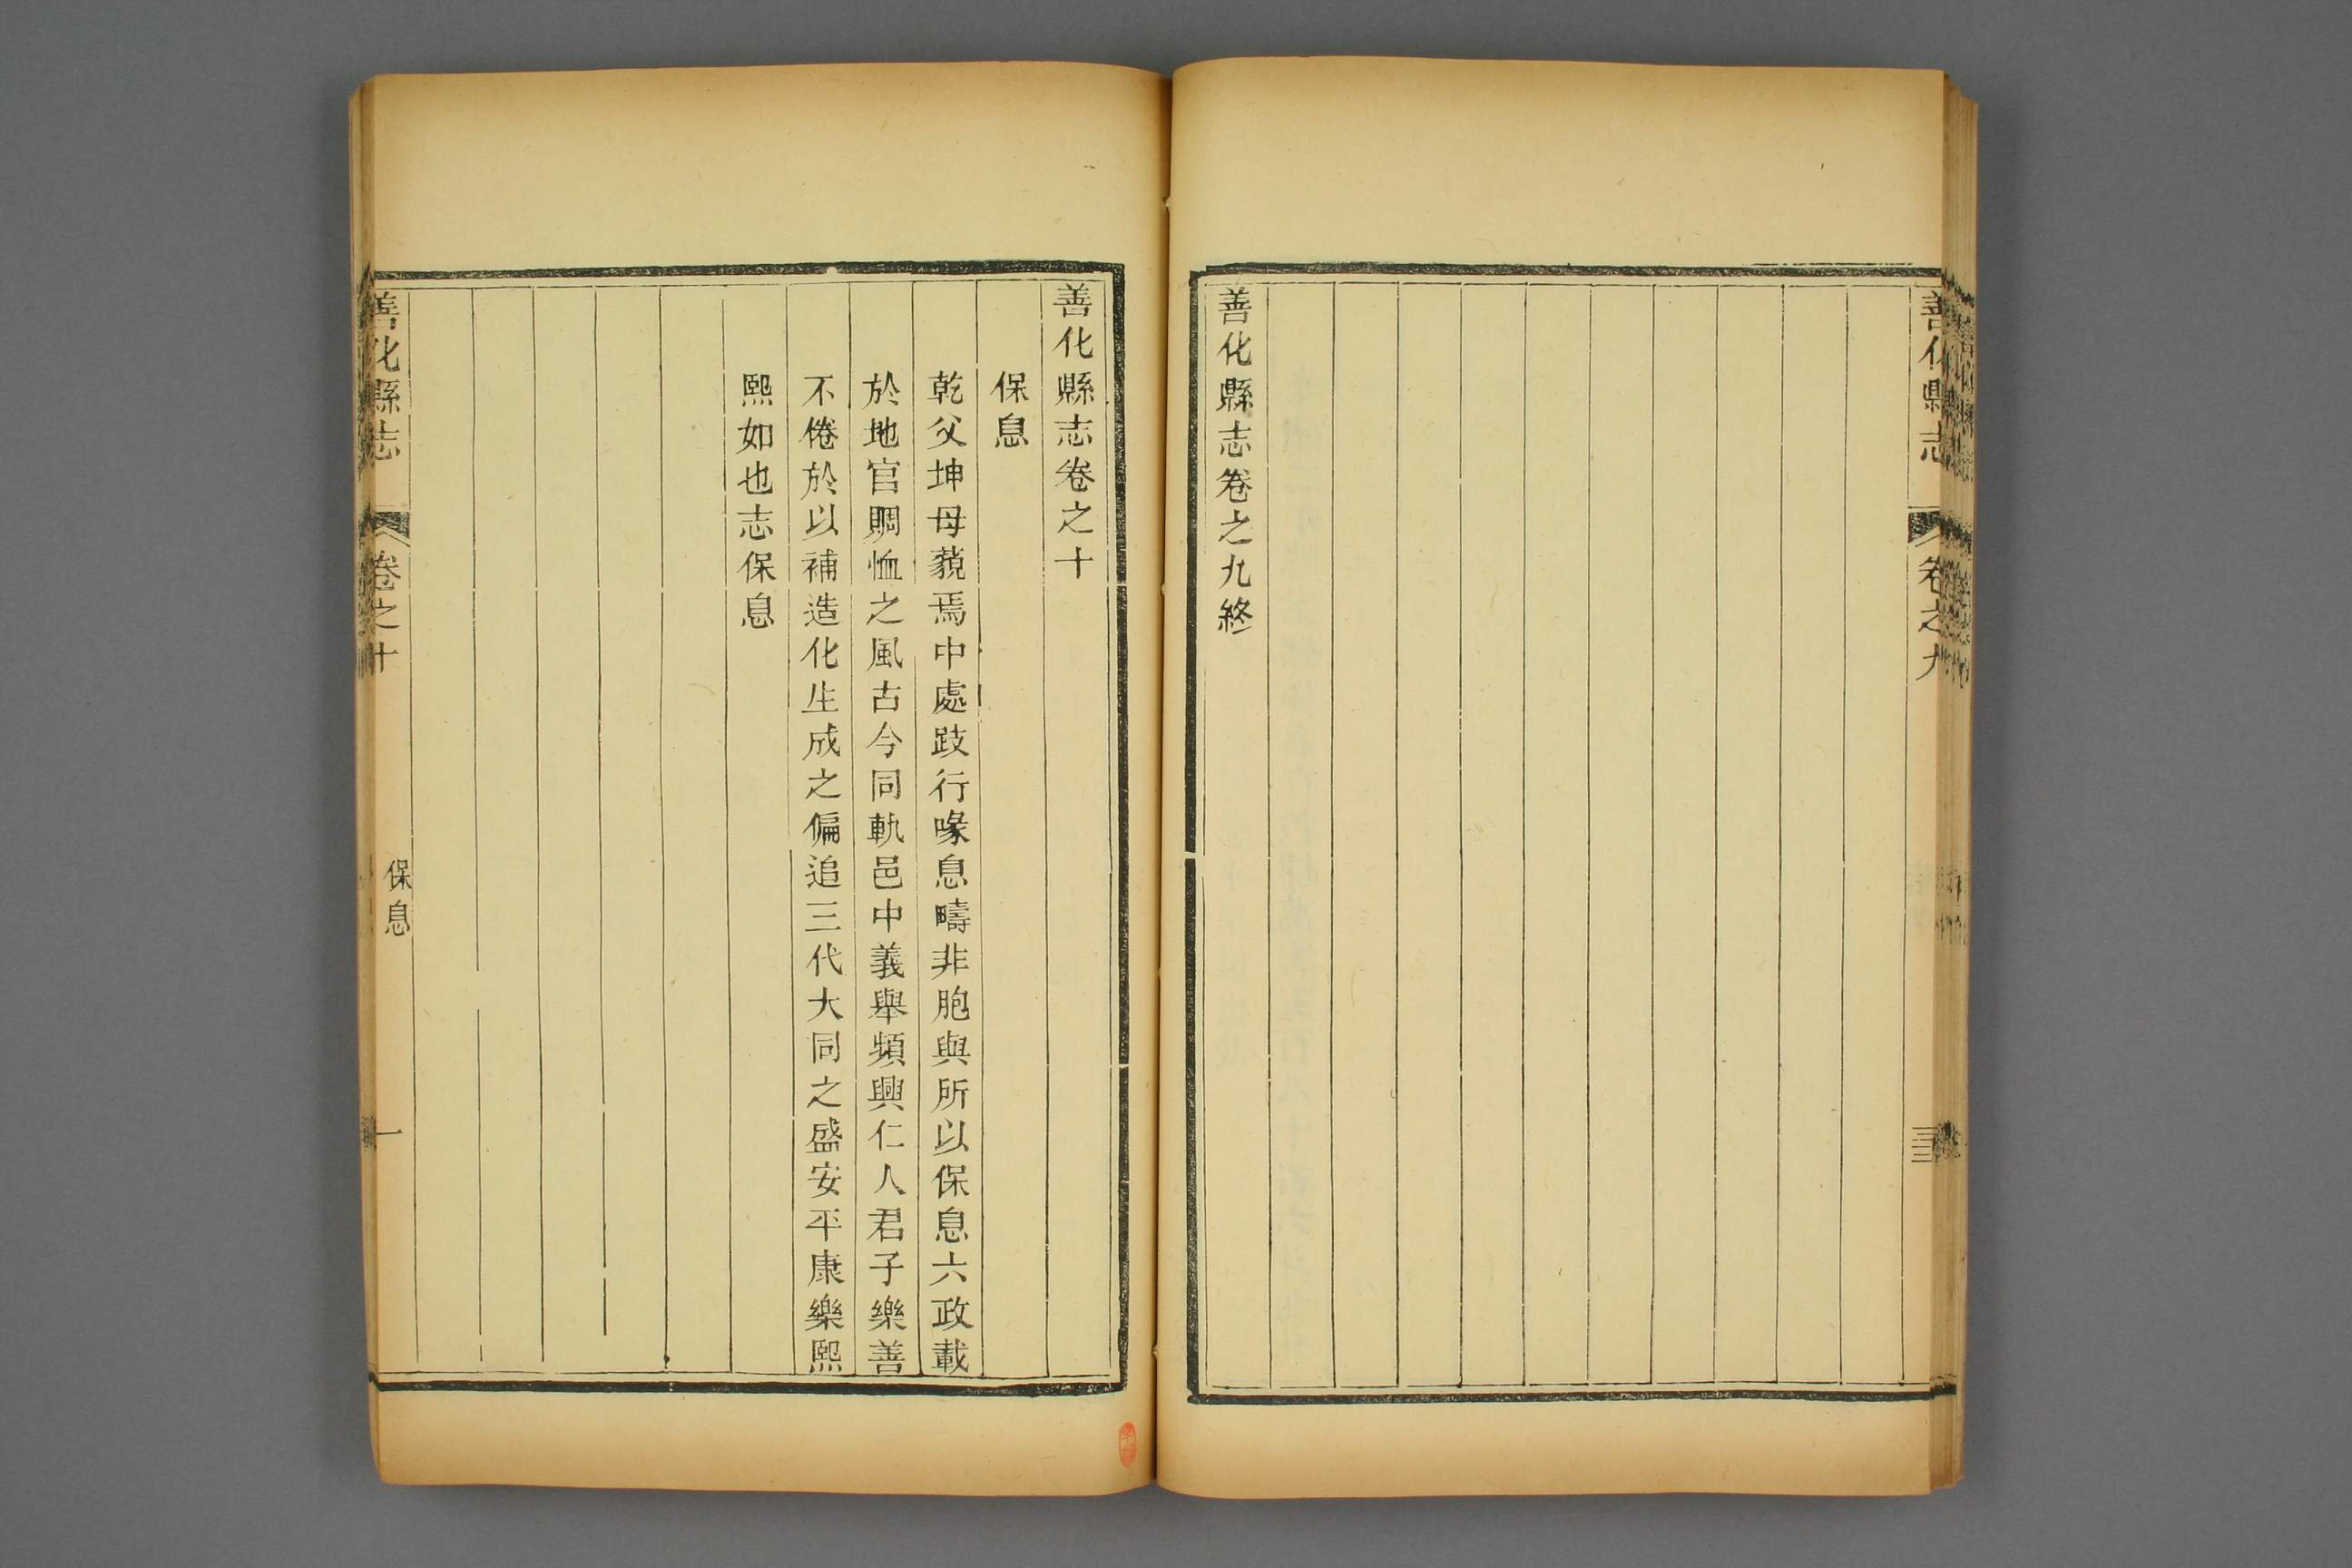 善化縣志
卷之九
善化縣志卷之九終
善化縣志卷之十
保息
乾父坤母藐焉中處跂行喙息疇非胞與所以保息六政載
於地官賙恤之風古今同軌邑中義舉頻興仁人君子樂善
不倦於以補造化生成之偏追三代大同之盛安平康樂熙
熙如也志保息
善化縣志
卷之十
保息
一